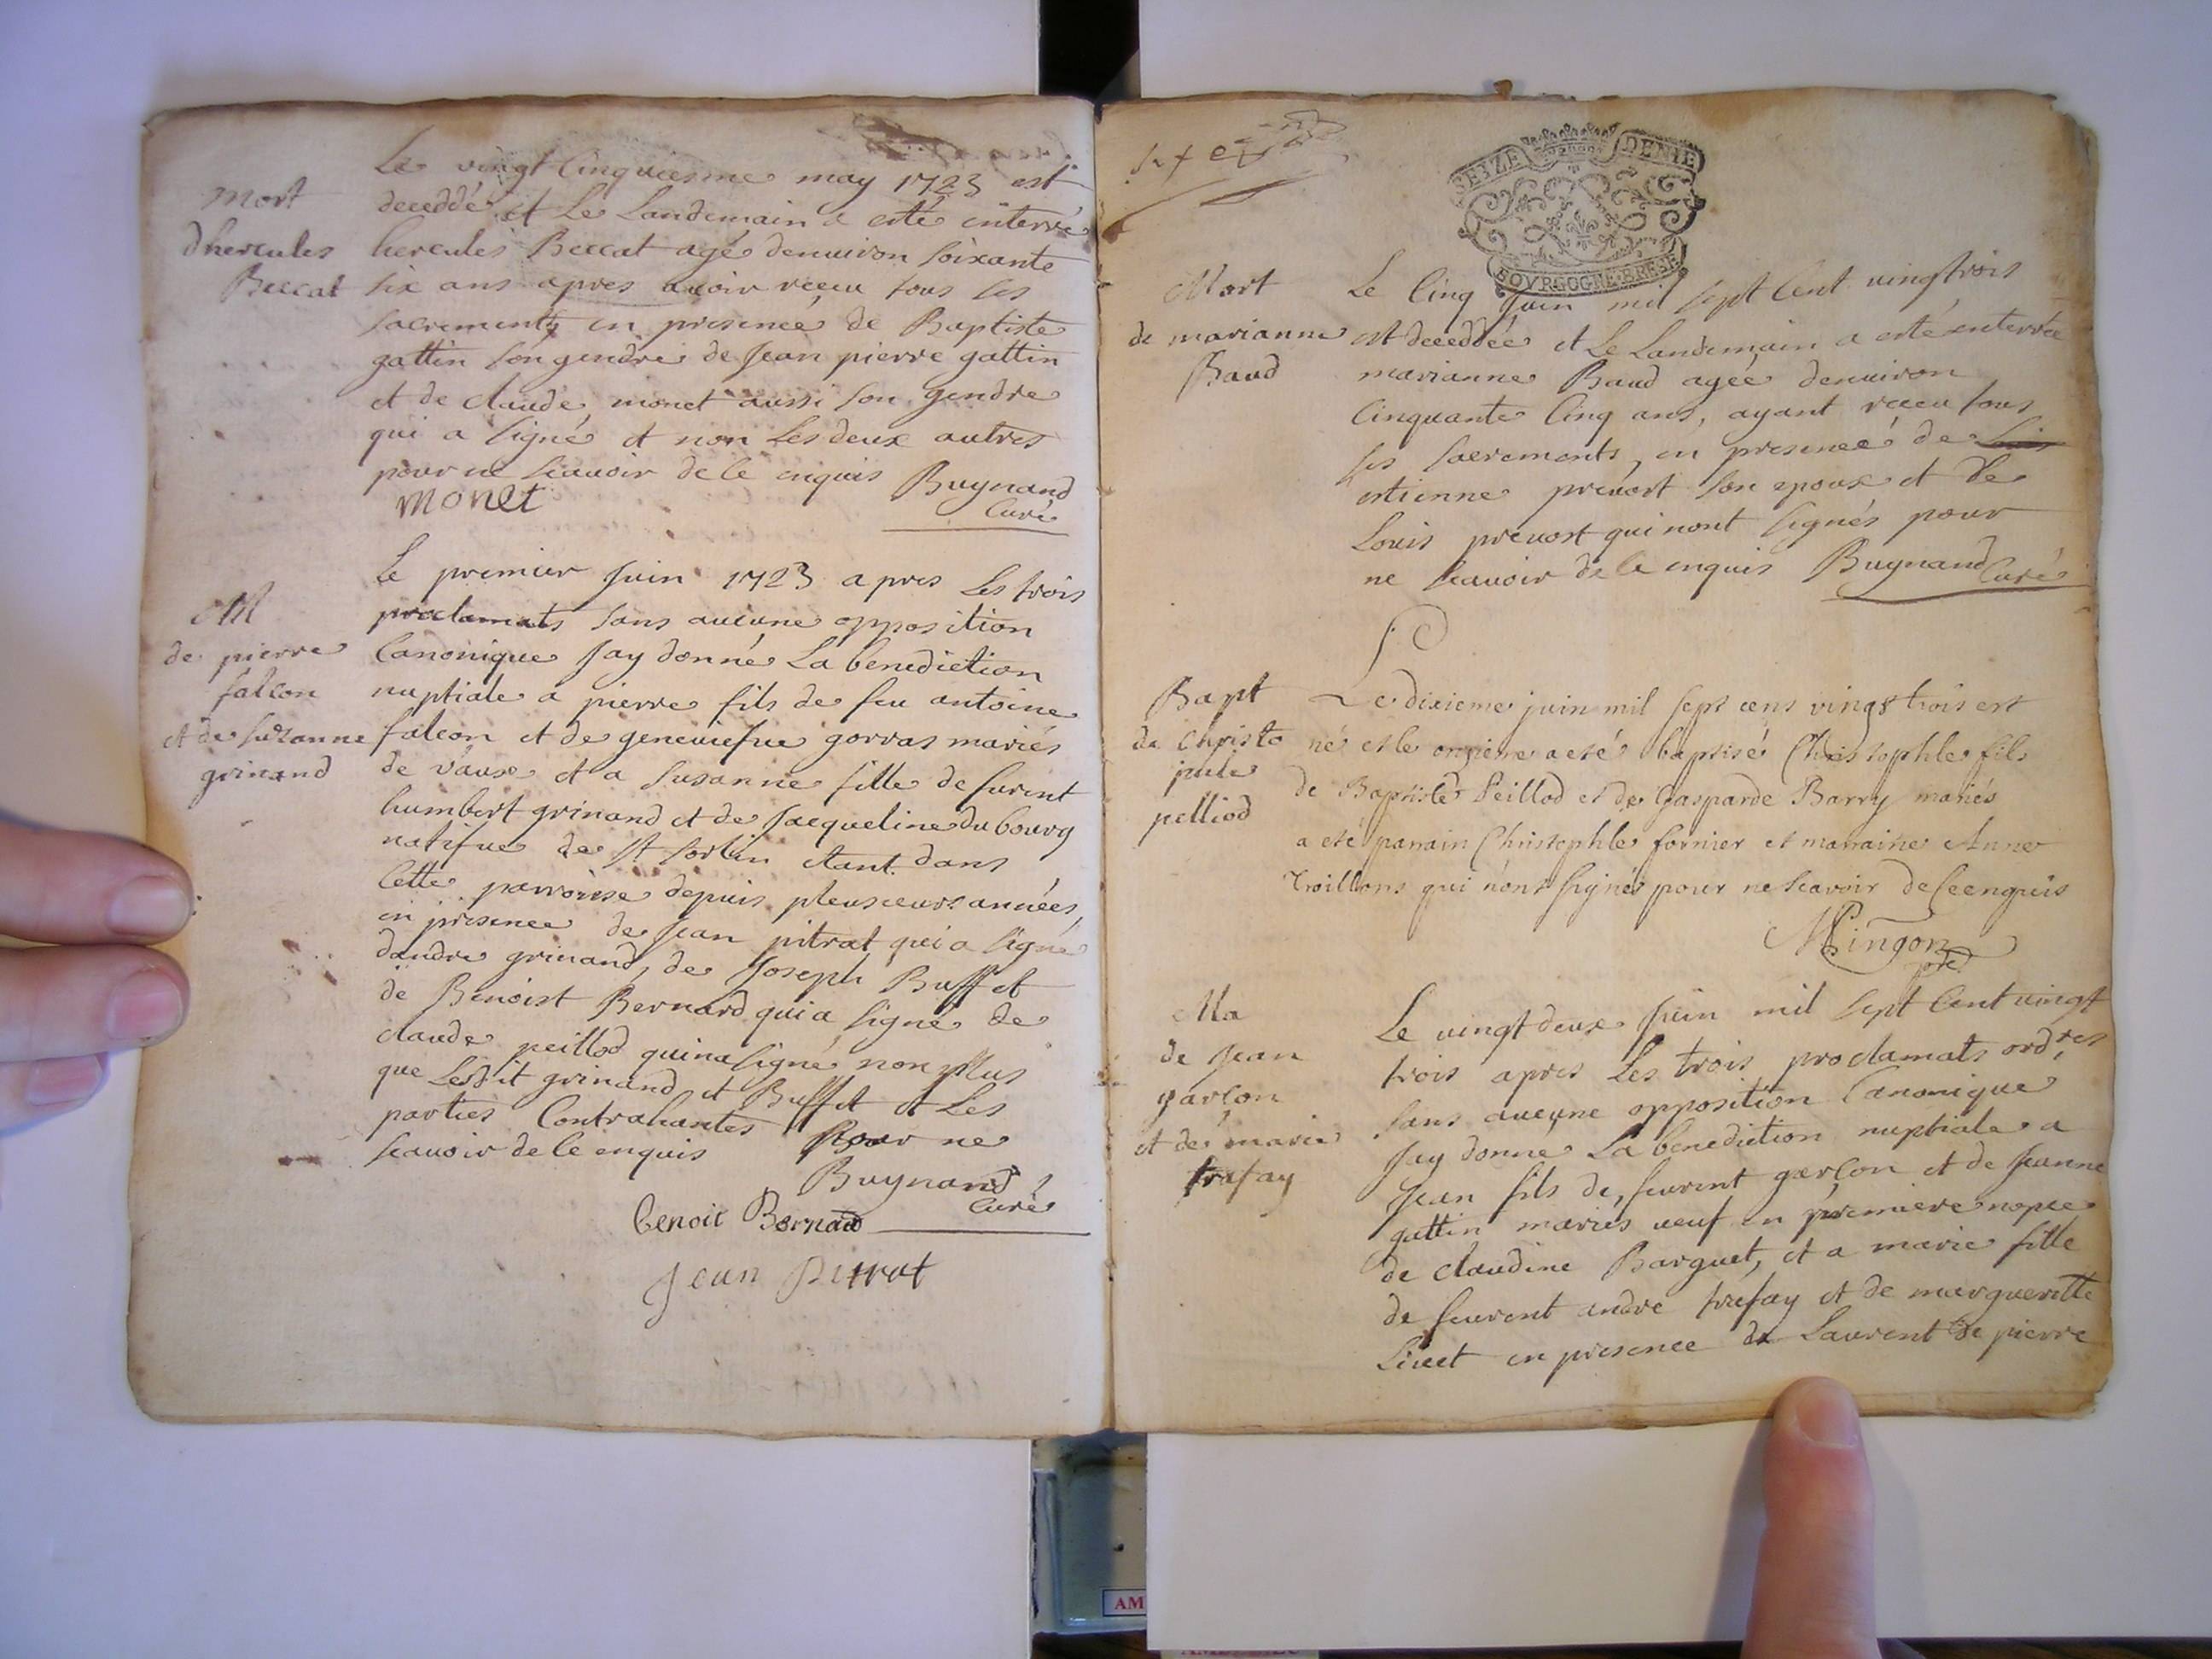 Mort
dhercules
Beccat
Le vingt cinquiesme may 1723 est
deceddé et Le Landemain a esté enterré
hercules Beccat agé denuiron soixante
six ans apres auoir reçeu tous ses
sacrements en presence de Baptiste
gattin son gendre de Jean pierre gattin
et de claude monet aussi son gendre
qui a signé et non Les deux autres
pour ne scauoir de ce enquis Buynand
monet
Curé
M
de pierre
falcon
et de suzanne
grinand
Le premier Juin 1723 apres Les trois
proclamats sans aucune opposition
Canonique Jay donné La benediction
nuptiale a pierre fils de feu antoine
falcon et de geneuiefue gorras mariés
de vaux et a susanne fille de furent
humbert grinand et de Jacqueline du bourg
natifue de st sorlin etant dans
cette parroisse depuis pleusieurs années,
en presence de Jean pitrat qui a signé
dandre grinand, de Joseph Buffet
de Benoist Bernard qui a signé de
claude peillod qui na signé non plus
que Lesdit grinand et Buffet et Les
parties Contrahantes pour ne
scauoir de ce enquis
Buynand
Curé
benoit Bernard
Jean Pitrat
SEIZE DENIE
BOVRGOGNE BRESE
Mort
de marianne
Baud
Le Cinq Juin mil sept Cent vingtrois
est deceddée et Le Landemain a esté enterrée
marianne Baud agée denuiron
Cinquante Cinq ans, ayant reçeu tous
ses sacrements, en presence de
estienne preuost son epoux et de
Louis preuost qui nont signés pour
ne scauoir de ce enquis Buynand
Curé
Bapt
de Christo
phle
pelliod
Le dixieme juin mil sept cens vingt trois est
né et le onzieme a eté baptisé Christophle fils
de Baptiste Peillod et de Gasparde Barry mariés
a eté parrain Christophle fornier et marraine Anne
Troillons qui nont signés pour ne scavoir de ce enquis
Mingon
ptre
Ma
de Jean
garlon
et de marie
trafay
Le vingt deux Juin mil sept Cent vingt
trois apres Les trois proclamats ordres
sans aucune opposition Canonique
Jay donné La benediction nuptiale a
Jean fils de, feurent garlon et de Jeanne
gattin mariés ueuf en premiere nopce
de claudine Barquet, et a marie fille
de feurent andre trafay et de marguerette
Liuet en presence de Laurent de pierre